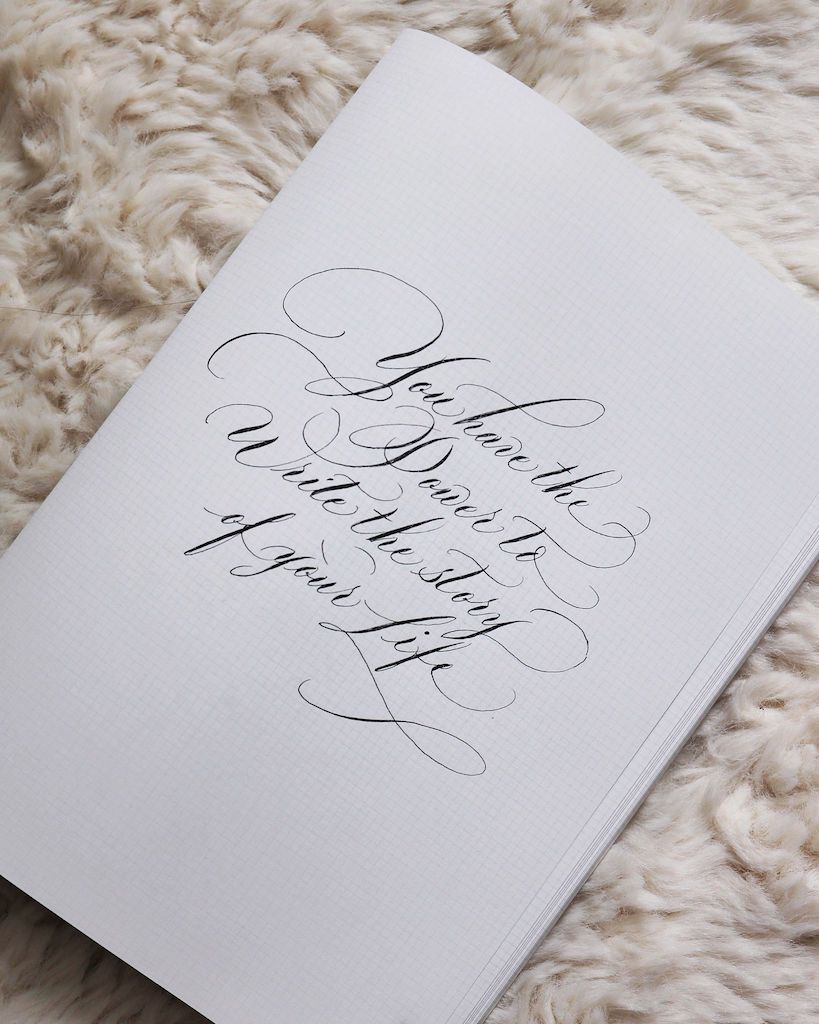 You have the
Power to
Write the story
of your Life